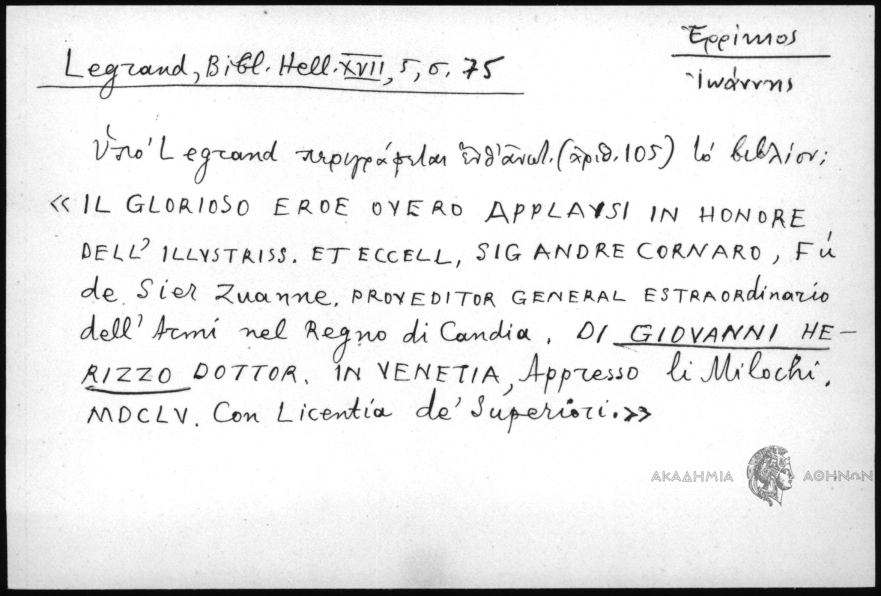 Ἐρρίτσος
Ἰωάννης
Legrand, Bibl. Hell. XVII, 5, σ. 75
Ὑπὸ Legrand περιγράφεται ἐνθ' ἀνωτ. (ἀριθ. 105) τὸ βιβλίον;
« IL GLORIOSO EROE OVERO APPLAVSI IN HONORE
DELL' ILLVSTRISS. ET ECCELL, SIG ANDRE CORNARO, Fú
de Sier Zuanne. PROVEDITOR GENERAL ESTRAORdinario
dell' Armi nel Regno di Candia. DI GIOVANNI HE-
RIZZO DOTTOR. IN VENETIA, Appresso li Milochi.
MDCLV. Con Licentia de' Superiori.»
ΑΚΑΔΗΜΙΑ ΑΘΗΝΩΝ